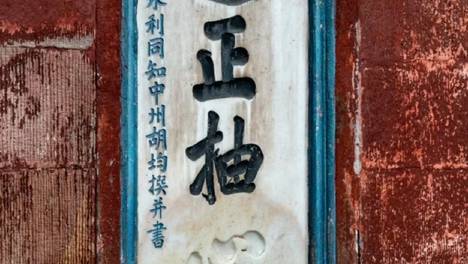 正抽
水利同知中州胡均撰并書